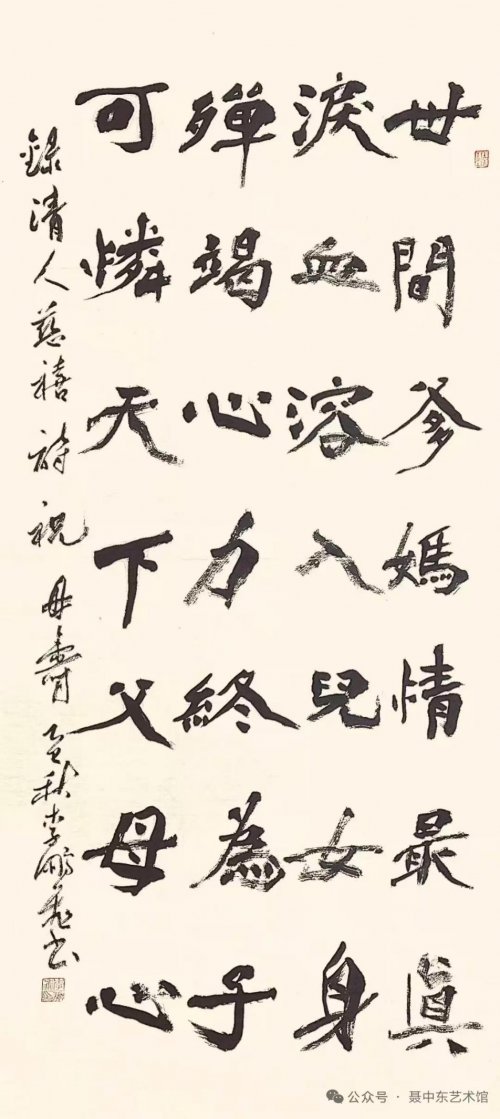 世間爹媽情最真
淚血溶入兒女身
殫竭心力終為子
可憐天下父母心
錄清人慈禧詩祝母壽 秋李鵬飛書
公众号 · 聂中东艺术馆